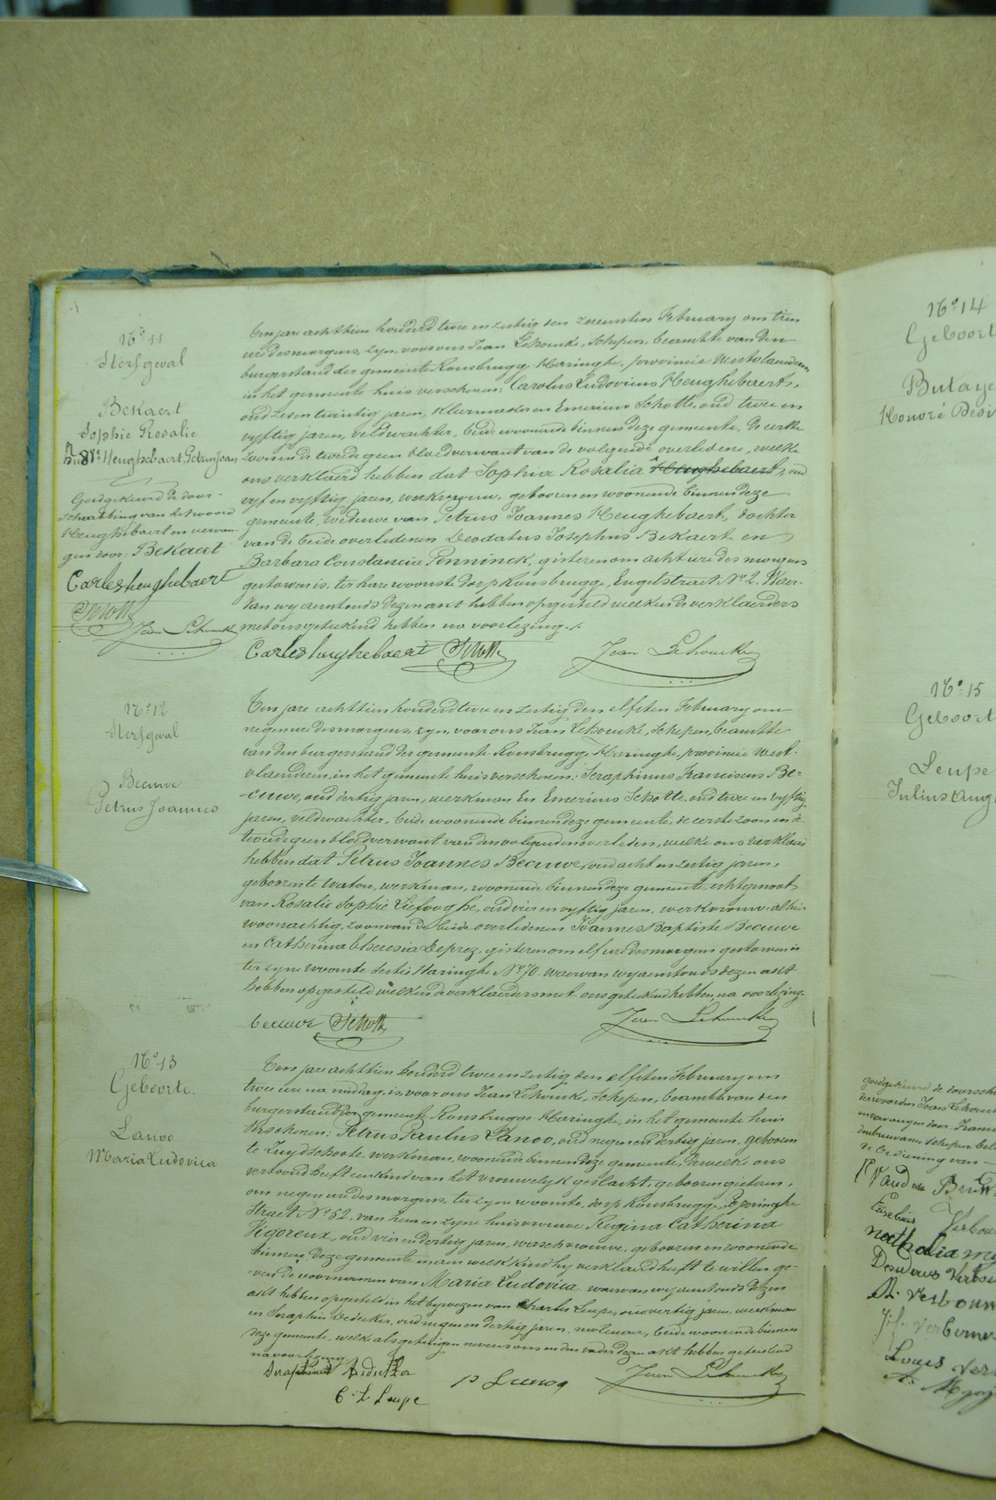 N° 11
Sterfgeval
Bekaert
Sophie Rosalie
Heughebaert Petrus Joan
Goedgekeurd de door-
schrabbing van het woord
Heughebaert en vervan
gen door Bekaert
Carles heughebaert
Schotte
Jean Lehoucke
Ten jare achttien honderd twee en zestig den zeventen February om tien
ure des morgens, zyn voor ons Jean Lehoucke, Schepen, beambte van den
burgerstand der gemeente Ronsbrugge Haringhe, provincie Westvlaenderen
in het gemeente huis verschenen Carolus Ludovicus Heughebaert,
oud zes en twintig jaren, kleermaker en Emerinus Schotte, oud twee en
vyftig jaren, veldwachter, beide woonende binnen deze gemeente, de eerste
zoon en de tweede geen bloedverwant van de volgende overledene, welke
ons verklaerd hebben dat Sophia Rosalia Heughebaert, oud
vyf en vyftig jaren, werkvrouw, geboren en woonende binnen deze
gemeente, weduwe van Petrus Joannes Heughebaert, dochter
van de beide overledenen Deodatus Josephus Bekaert en
Barbara Constancia Penninck, gisteren om acht ure des morgens
gestorven is, ter hare woonste dorp Ronsbrugge, Engelstraet N° 2. Waer-
van wy aenstonds dezen act hebben opgesteld welken de verklaerders
met ons geteekend hebben na voorlezing./.
Carles heughebaert Schotte Jean Lehoucke
N° 12
Sterfgeval
Beeuwe
Petrus Joannes
Ten jare achttien honderd twee en zestig den elfsten February om
negen ure des morgens, zyn voor ons Jean Lehoucke, Schepen, beambte
van den burgerstand der gemeente Ronsbrugge Haringhe, provincie West-
vlaenderen, in het gemeente huis verschenen: Seraphinus Franciscus Be-
euwe, oud dertig jaren, werkman en Emerinus Schotte, oud twee en vyftig
jaren, veldwachter, beide woonende binnen deze gemeente, de eerste zoon en de
tweede geen bloedverwant van den volgenden overleden, welke ons verklaerd
hebben dat Petrus Joannes Beeuwe, oud acht en zestig jaren,
geboren te Watou, werkman, woonende binnen deze gemeente, echtgenoot
van Rosalie Sophie Liefooghe, oud vier en vyftig jaren, werkvrouw, alhier
woonachtig, zoon van de beide overledenen Joannes Baptiste Beeuwe
en Catherina Theresia Deprez, gisteren om elf ure des morgens gestorven is
ter zyne woonste sectie Haringhe N° 70 waervan wy aenstonds dezen act
hebben opgesteld welken de verklaerders met ons geteekend hebben, na voorlezing.
beeuwe Schotte Jean Lehoucke
N° 13
Geboorte
Lanoo
Maria Ludovica
Ten jare achttien honderd twee en zestig den elfsten February om
twee ure na middag, is voor ons Jean Lehoucke, Schepen, beambte van den
burgerstand der gemeente Ronsbrugge Haringhe, in het gemeente huis
verschenen: Petrus Paulus Lanoo, oud negen en dertig jaren, geboren
te Zuydschoote, werkman, woonende binnen deze gemeente, dewelke ons
vertoond heeft een kind van het vrouwelyk geslacht, geboren gisteren,
om negen ure des morgens, ter zyne woonste, dorp Ronsbrugge, Poperinghe
Straet N° 52, van hem en zyne huisvrouwe Regina Catherina
Vigoreux, oud vier en dertig jaren, werkvrouwe, geboren en woonende
binnen deze gemeente en aen welk kind hy verklaerd heeft te willen ge-
ven de voornamen van Maria Ludovica waervan wy aenstonds dezen
akt hebben opgesteld in het bywezen van Charles Leupe, oud vertig jaren, werkman
en Seraphin Dedecker, oud negen en dertig jaren, molenaer, beide woonende binnen
deze gemeente, welke als getuigen nevens ons en den vader dezen akt hebben geteekend
na voorlezing
Seraphinus Dedecker P Lanoo Jean Lehoucke
C. L Leupe
N° 14
Geboort
Butaye
Honoré Desi
N° 15
Geboort
Leupe
Julius Aug
goedgekeurd de doorsch
der woorden Jean Lehou
Verbou
nathalia
Desiderus Verbou
Verbouw
Verberne
Louis Ver